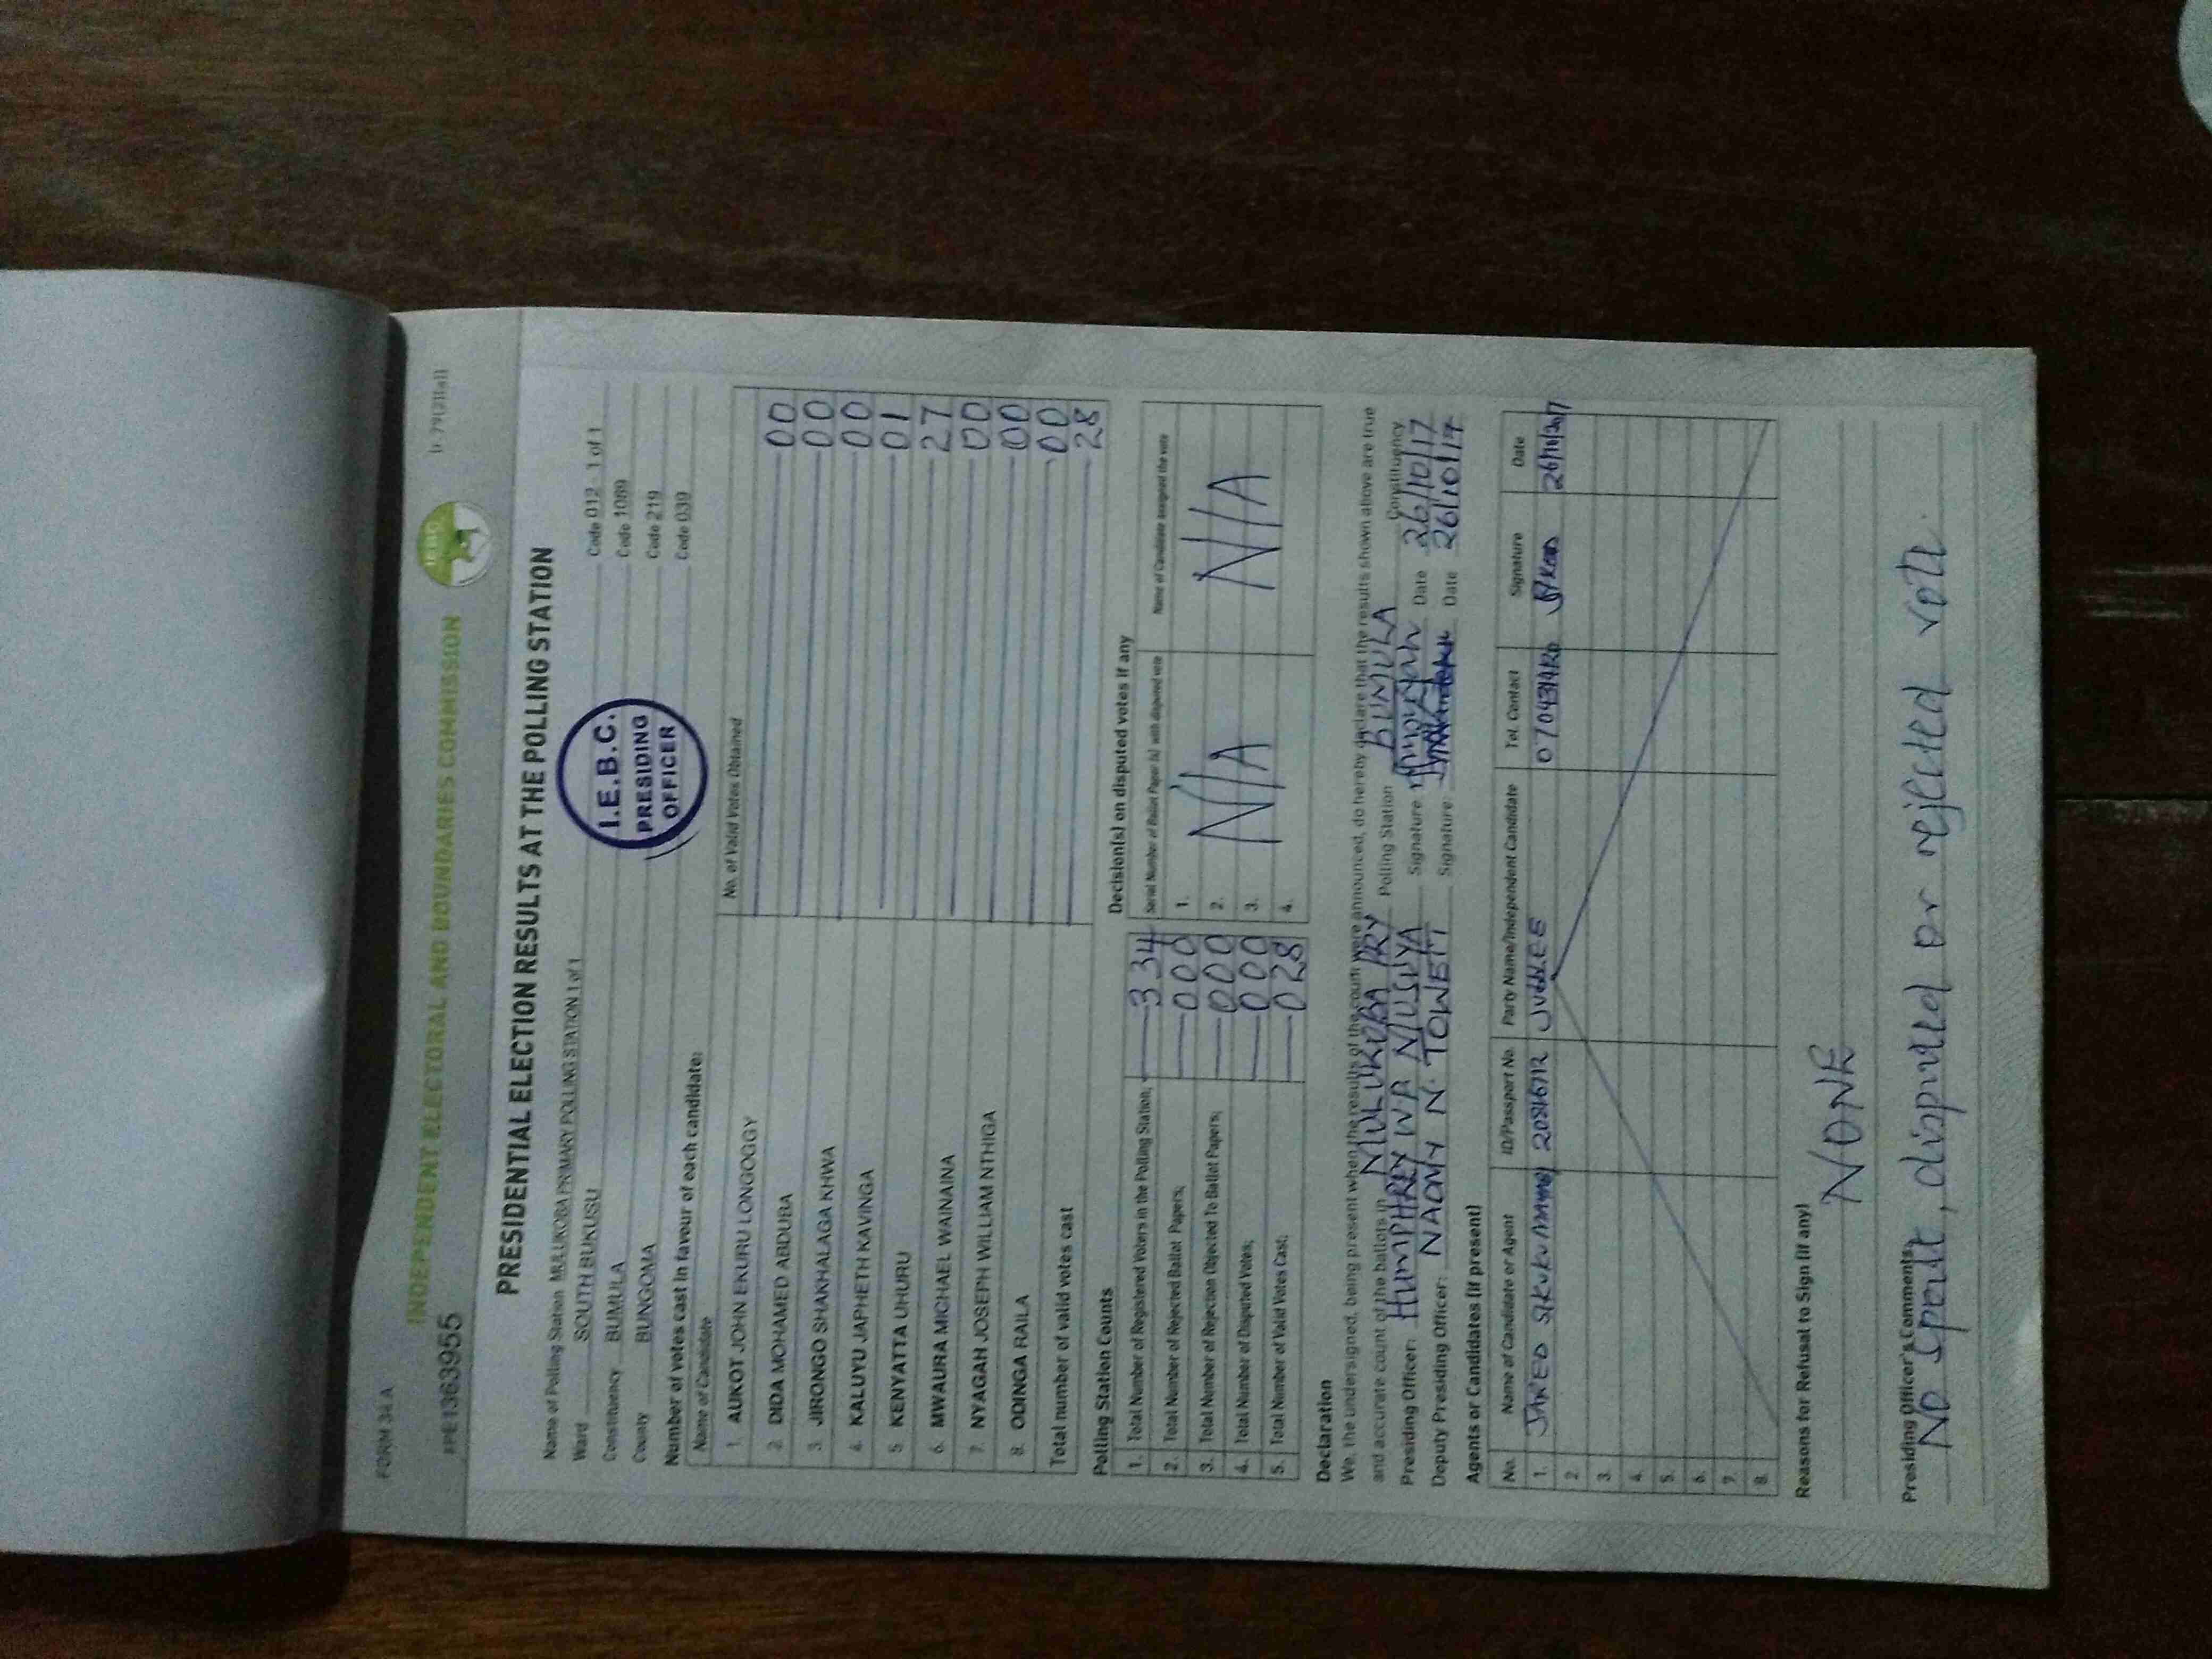 FORM 34A
(r. 79(2)(a))
INDEPENDENT ELECTORAL AND BOUNDARIES COMMISSION
IEBC
#PE1363955
PRESIDENTIAL ELECTION RESULTS AT THE POLLING STATION
Name of Polling Station MULUKOBA PRIMARY POLLING STATION 1 of 1 Code 012 - 1 of 1
Ward SOUTH BUKUSU Code 1089
Constituency BUMULA Code 219
County BUNGOMA Code 039
I.E.B.C.
PRESIDING
OFFICER
Number of votes cast in favour of each candidate:
Name of Candidate No. of Valid Votes Obtained
1. AUKOT JOHN EKURU LONGOGGY 00
2. DIDA MOHAMED ABDUBA 00
3. JIRONGO SHAKHALAGA KHWA 00
4. KALUYU JAPHETH KAVINGA 01
5. KENYATTA UHURU 27
6. MWAURA MICHAEL WAINAINA 00
7. NYAGAH JOSEPH WILLIAM NTHIGA 00
8. ODINGA RAILA 00
Total number of valid votes cast 28
Polling Station Counts
1. Total Number of Registered Voters in the Polling Station; 334
2. Total Number of Rejected Ballot Papers; 000
3. Total Number of Rejection Objected To Ballot Papers; 000
4. Total Number of Disputed Votes; 000
5. Total Number of Valid Votes Cast; 028
Decision(s) on disputed votes if any
Serial Number of Ballot Paper (s) with disputed vote Name of Candidate assigned the vote
1.
2. N/A N/A
3.
4.
Declaration
We, the undersigned, being present when the results of the count were announced, do hereby declare that the results shown above are true
and accurate count of the ballots in MULUKOBA PRY Polling Station BUMULA Constituency
Presiding Officer: HUMPHREY W.P. MUSUYA Signature Date 26/10/17
Deputy Presiding Officer: NAOMY N. TOWETT Signature: Date 26/10/17
Agents or Candidates (if present)
No. Name of Candidate or Agent ID/Passport No. Party Name/Independent Candidate Tel. Contact Signature Date
1. JARED SIKUKU JUBILEE 26/10/2017
2.
3.
4.
5.
6.
7.
8.
Reasons for Refusal to Sign (if any)
NONE
Presiding Officer's Comments:
No spoilt, disputed or rejected vote.